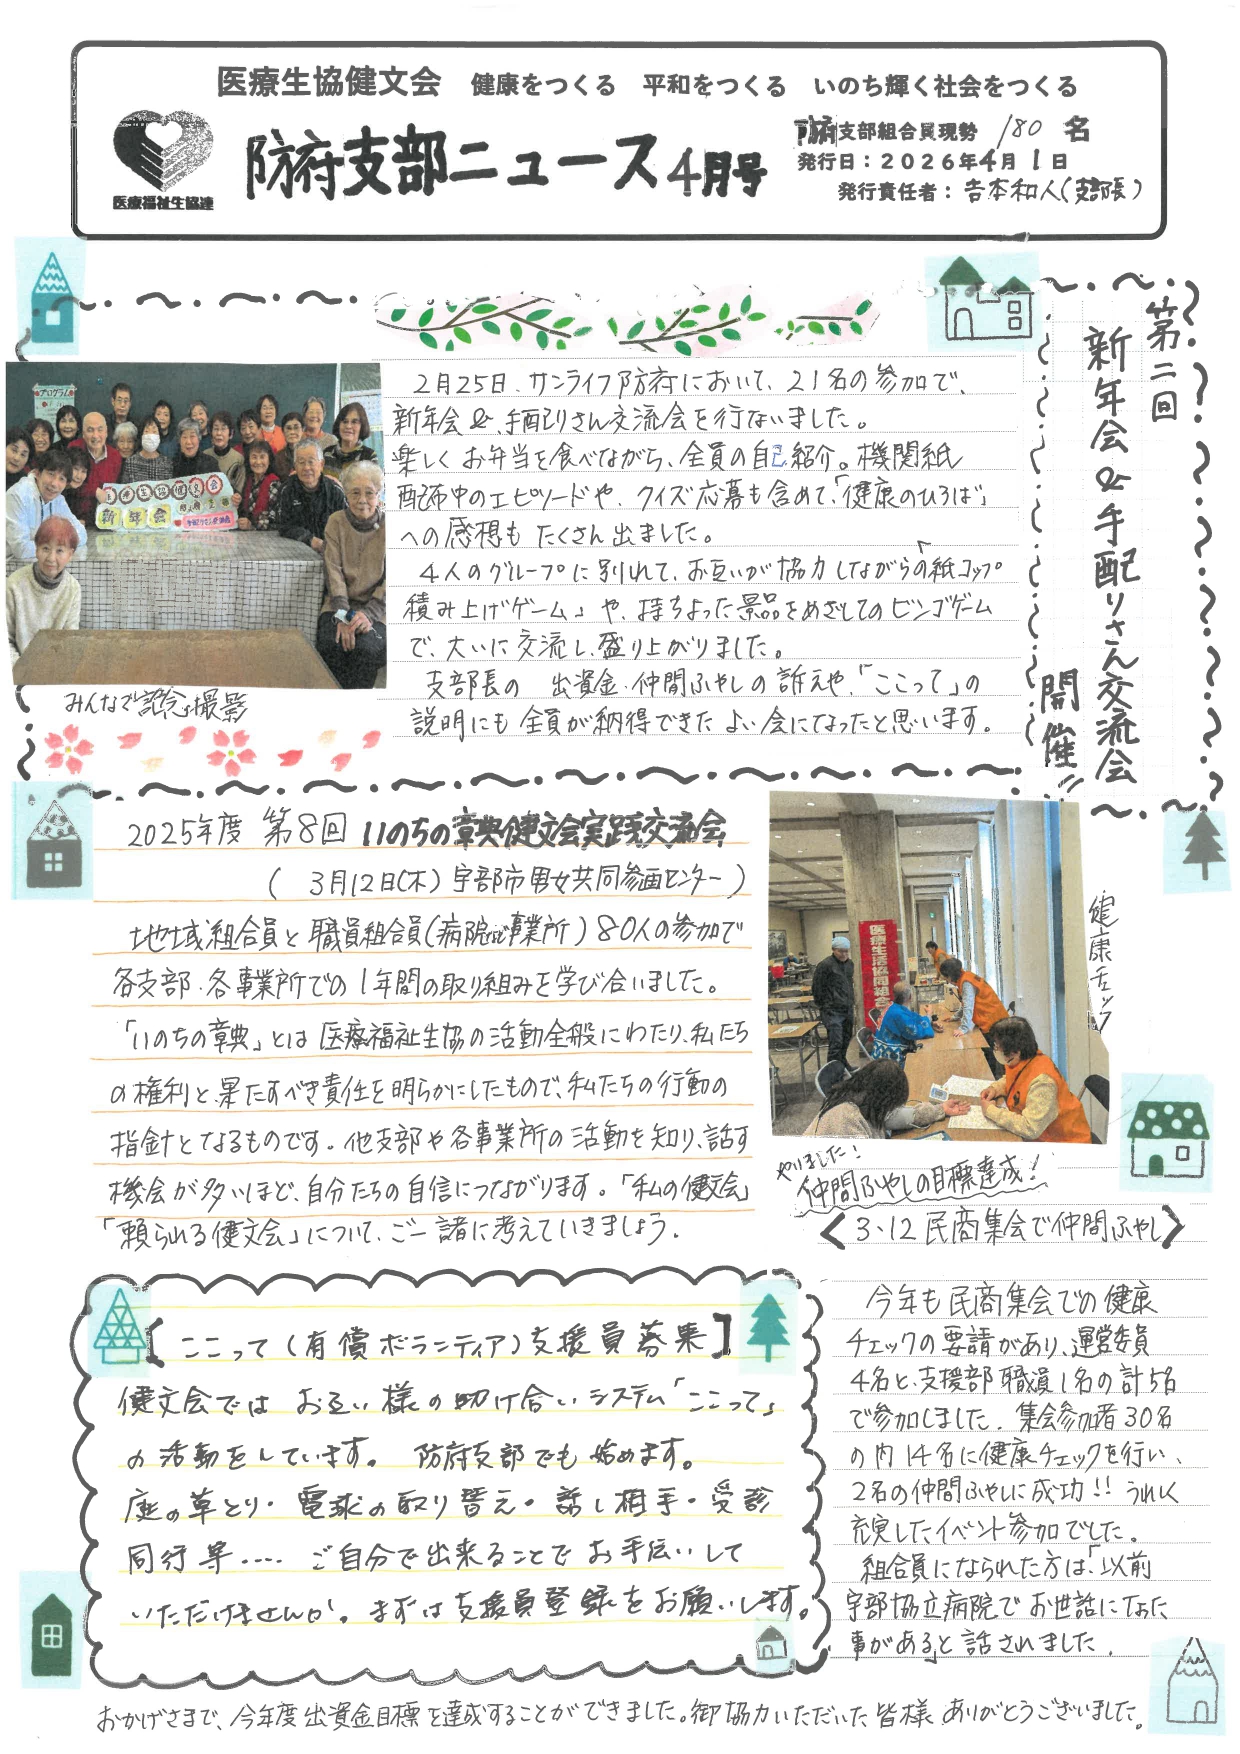 医療生協健文会　健康をつくる　平和をつくる　いのち輝く社会をつくる
医療福祉生協連
防府支部ニュース4月号
防府支部組合員現勢 180 名
発行日：2026年4月1日
発行責任者：吉本和人(支部長)
第二回
新年会&手配りさん交流会
開催!!
2月25日、サンライフ防府において、21名の参加で、
新年会&手配りさん交流会を行ないました。
楽しくお弁当を食べながら、全員の自己紹介。機関紙
配布中のエピソードや、クイズ応募も含めて、「健康のひろば」
への感想もたくさん出ました。
4人のグループに別れて、お互いが協力しながらの「紙コップ
積み上げゲーム」や、持ちよった景品をめざしてのビンゴゲーム
で、大いに交流し、盛り上がりました。
支部長の 出資金・仲間ふやしの訴えや、「ここって」の
説明にも全員が納得できたよい会になったと思います。
プログラム
医療生協健文会
新年会
みんなで記念撮影
2025年度 第8回 いのちの章典健文会実践交流会
( 3月12日(木) 宇部市男女共同参画センター )
地域組合員と職員組合員(病院や事業所)80人の参加で
各支部・各事業所での1年間の取り組みを学び合いました。
「いのちの章典」とは医療福祉生協の活動全般にわたり、私たち
の権利と、果たすべき責任を明らかにしたもので、私たちの行動の
指針となるものです。他支部や各事業所の活動を知り、話す
機会が多いほど、自分たちの自信につながります。「私の健文会」
「頼られる健文会」について、ご一諸に考えていきましょう。
医療生活協同組合
健康チェック
やりました!
仲間ふやしの目標達成!
<3・12 民商集会で仲間ふやし>
今年も民商集会での健康
チェックの要請があり、運営委員
4名と、支援部職員1名の計5名
で参加しました。集会参加者30名
の内14名に健康チェックを行い、
2名の仲間ふやしに成功!! うれしく
充実したイベント参加でした。
組合員になられた方は、「以前
宇部協立病院でお世話になった
事がある」と話されました。
【ここって(有償ボランティア)支援員募集】
健文会では お互い様の助け合いシステム「ここって」
の活動をしています。 防府支部でも始めます。
庭の草とり・電球の取り替え・話し相手・受診
同行等…. ご自分で出来ることでお手伝いして
いただけませんか。まずは支援員登録をお願いします。
おかげさまで、今年度出資金目標を達成することができました。御協力いただいた皆様、ありがとうございました。